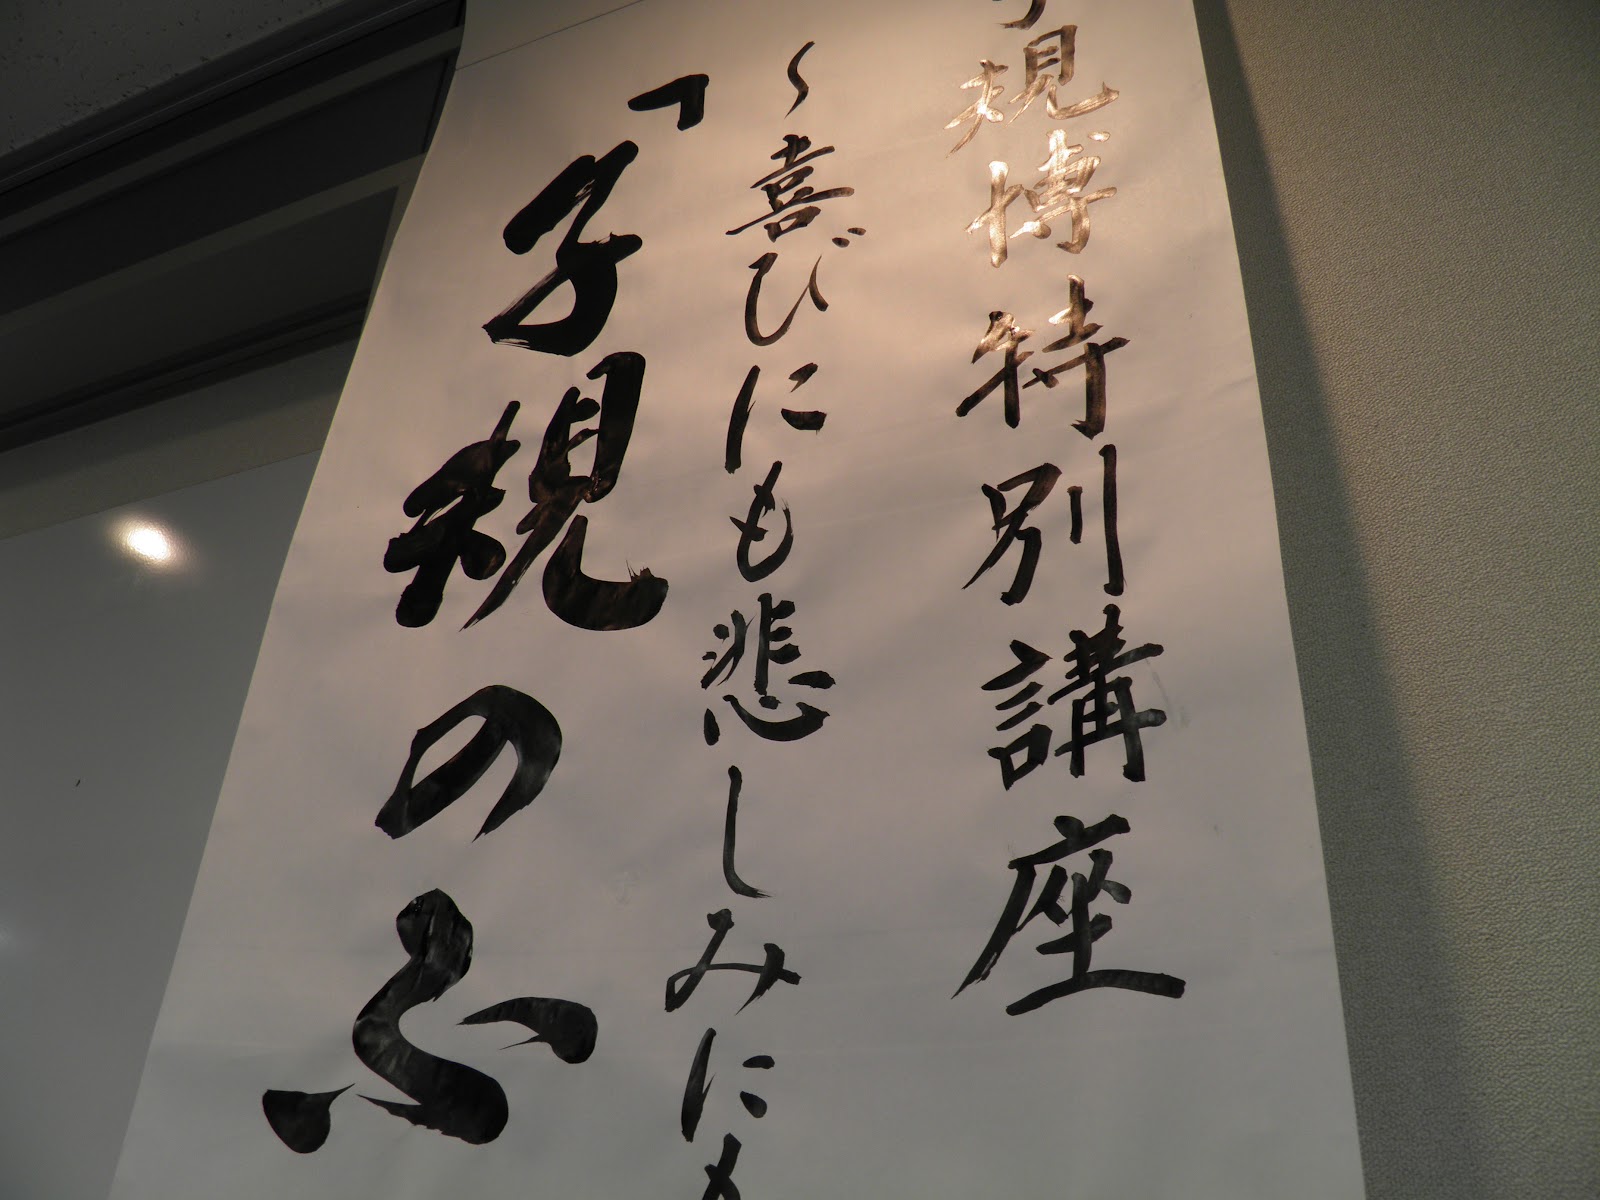 子規博特別講座
～喜びにも悲しみにも
「子規のふ